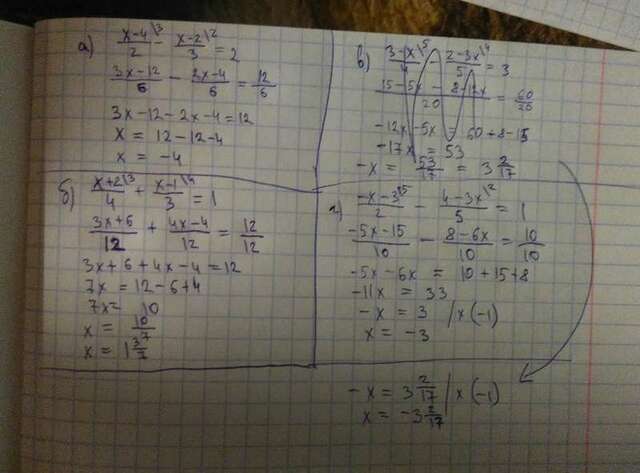 а) (x-4)\3/2 - (x-2)\2/3 = 2
(3x-12)/6 - (2x-4)/6 = 12/6
3x-12-2x-4=12
x = 12-12-4
x = -4
б) (x+2)\3/4 + (x-1)\4/3 = 1
(3x+6)/12 + (4x-4)/12 = 12/12
3x+6+4x-4=12
7x = 12-6+4
7x= 10
x = 10/7
x = 1 3/7
в) (3-x)\5/4 (2-3x)\4/5 = 3
(15-5x - 8-12x)/20 = 60/20
-12x-5x = 60+8-15
-17x = 53
-x = 53/17 = 3 2/17
г) (-x-3)\5/2 - (4-3x)\2/5 = 1
(-5x-15)/10 - (8-6x)/10 = 10/10
-5x-6x = 10+15+8
-11x = 33
-x = 3 /x(-1)
x = -3
-x = 3 2/17 /x(-1)
x = -3 2/17